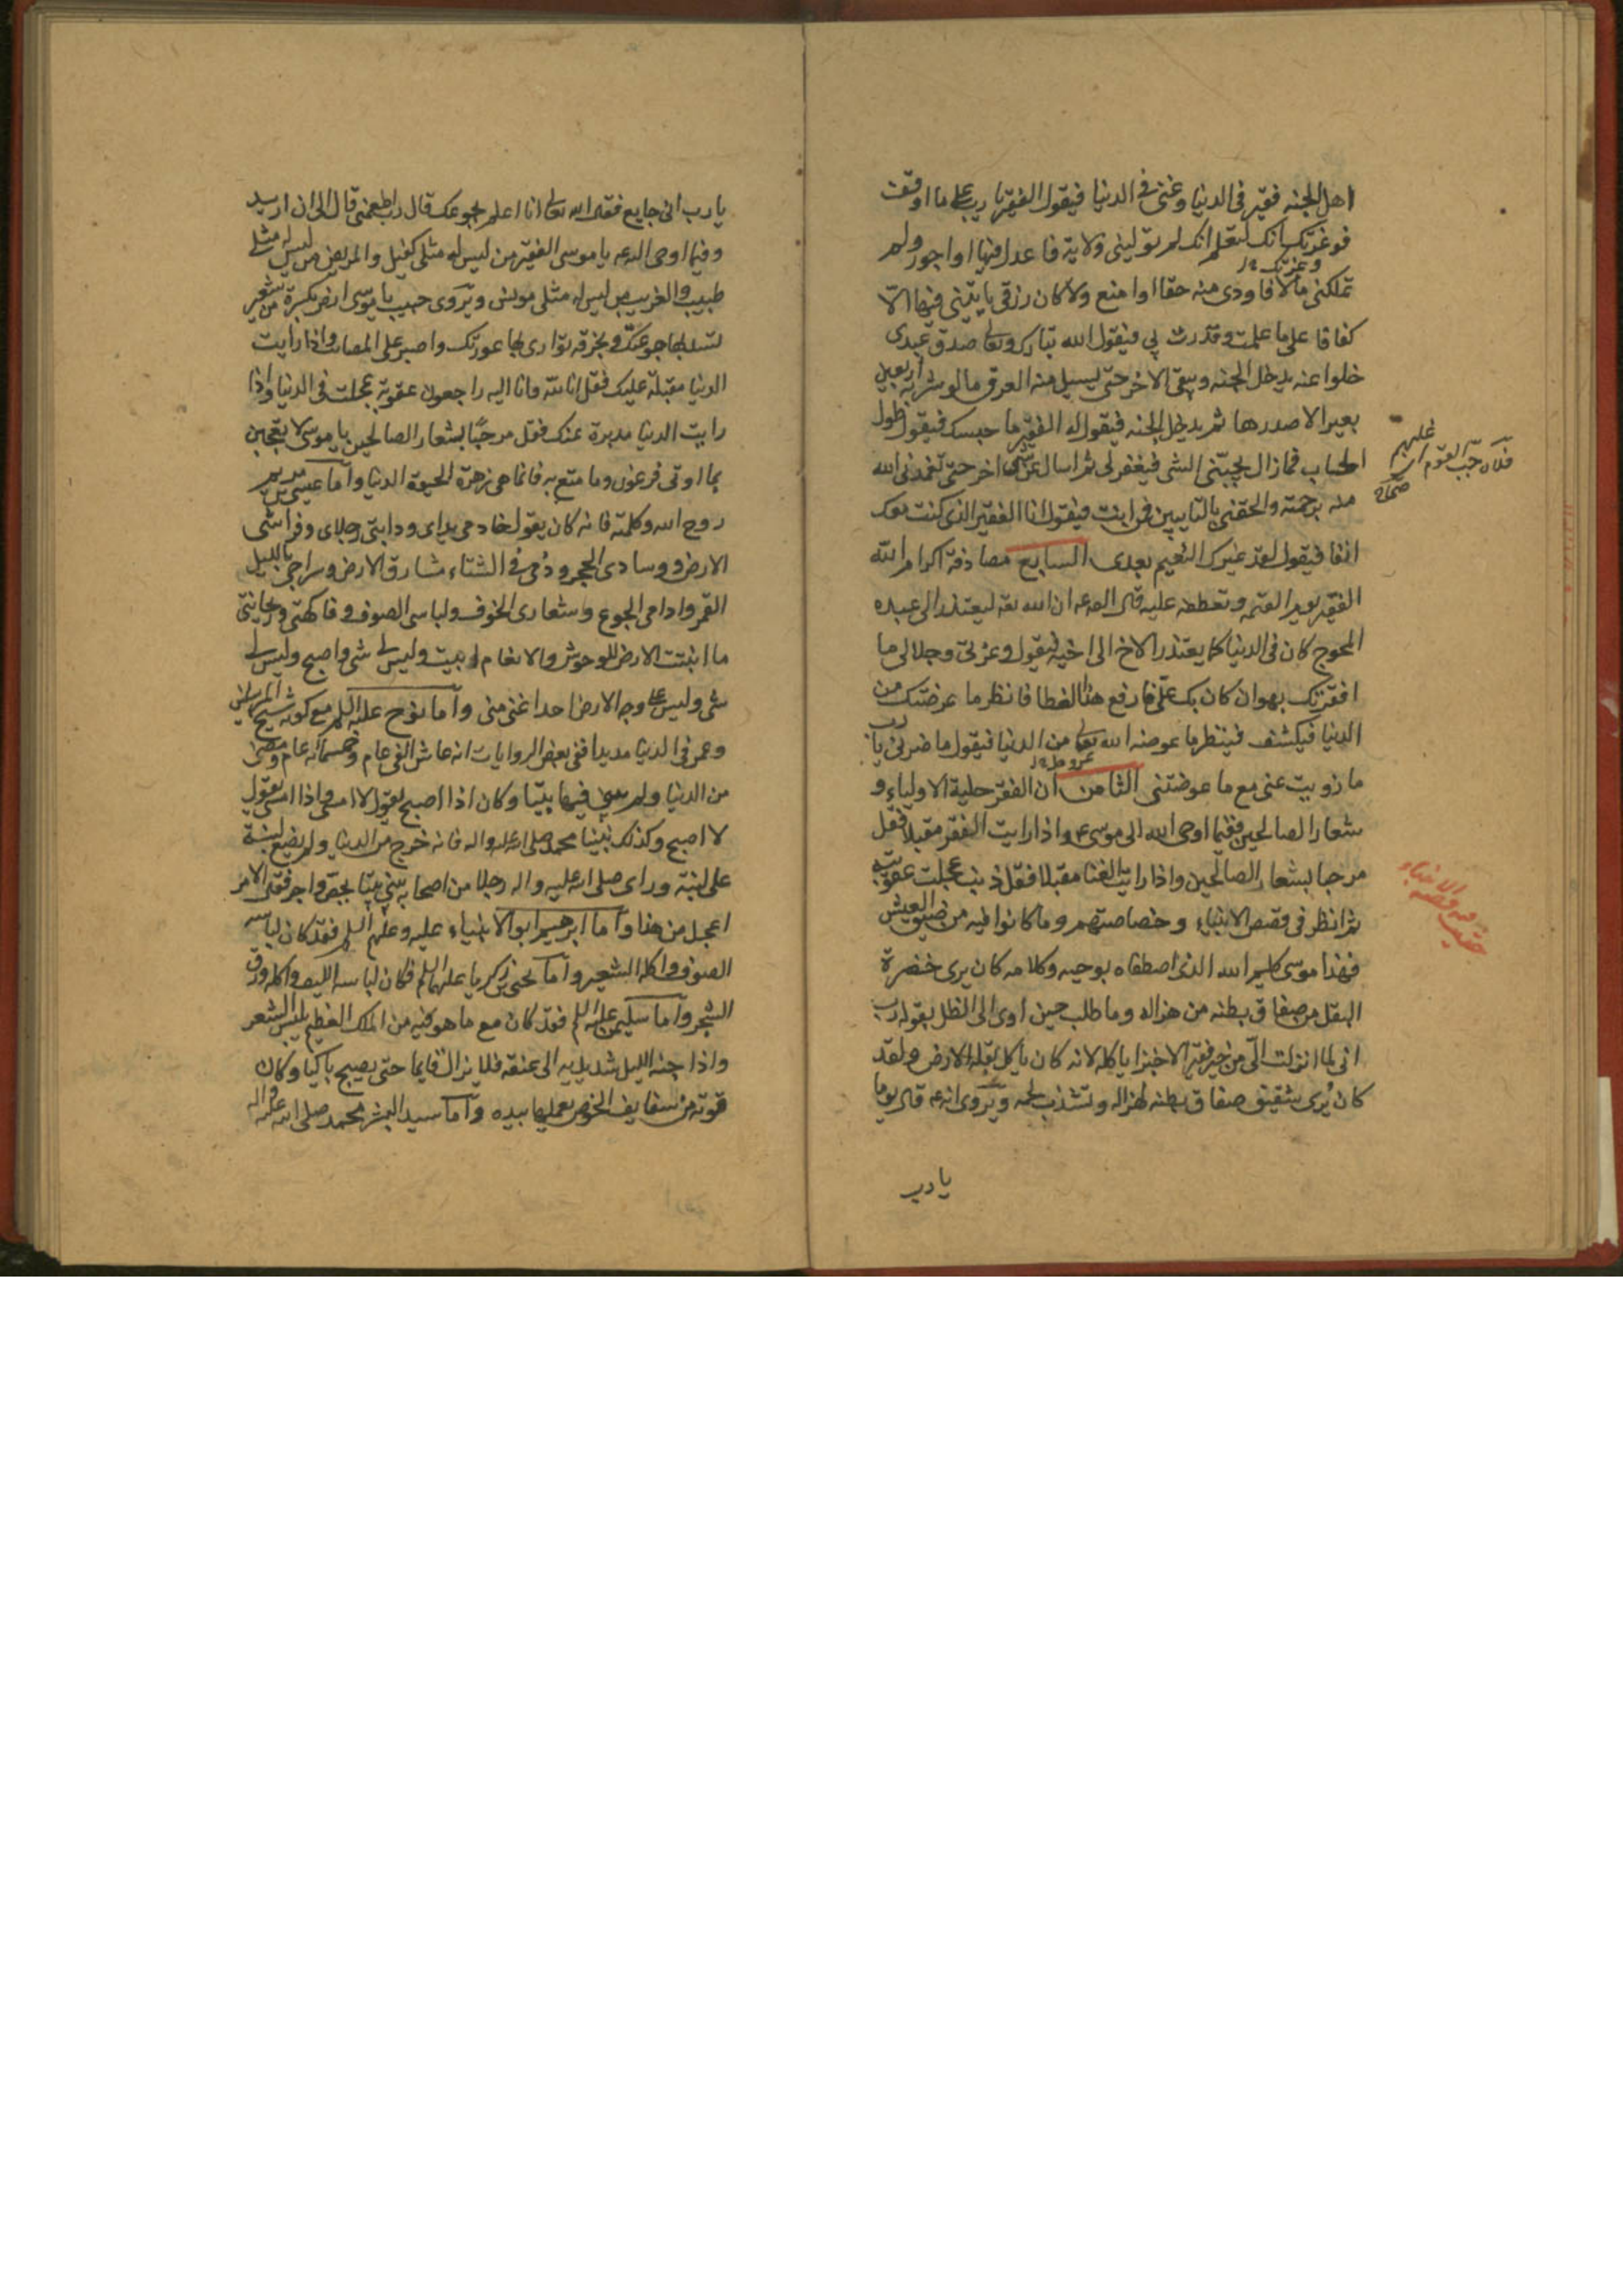 اهل الجنه فقير فى الدنيا وغنى فى الدنيا فيقول الفقير يا رب على ما اوقف
فوعزتك انك لتعلم انك لم تولينى ولاية فاعدل فيها او اجور ولم
تملكنى مالا فاودى منه حقا او امنع ولا كان رزقى ياتينى فيها الا
كفافا على ما علمت وقدرت لى فيقول الله تبارك وتعالى صدق عبدى
خلوا عنه يدخل الجنه ويبقى الاخر حتى يسيل منه العرق ما لو شربه اربعين
بعيرا لاصدرها ثم يدخل الجنه فيقول له الفقير ما حبسك فيقول طول
الحساب فما زال يجيئنى الشى فيغفر لى ثم اسال عن شى اخر حتى تغمدنى الله
منه برحمته والحقنى بالتايبين فمن انت فيقول انا الفقير الذى كنت معك
انفا فيقول لقد غيرك النعيم بعدى السابع مصادفة اكرام الله
الفقير يوم القيمه وتعطفه عليه قال الصه ان الله تعه ليعتذر الى عبده
المحوج كان فى الدنيا كما يعتذر الاخ الى اخيه فيقول وعزتى وجلالى ما
افقرتك بهوان كان بك على فارفع هذا الغطا فانظر ما عوضتك من
الدنيا فيكشف فينظر ما عوضه الله تعالى من الدنيا فيقول ما ضرنى يا رب
ما زويت عنى مع ما عوضتنى الثامن ان الفقر حلية الاولياء و
شعار الصالحين ففيما اوحى الله الى موسى ع واذا رايت الفقر مقبلا فقل
مرحبا بشعار الصالحين واذا رايت الغنا مقبلا فقل ذنب عجلت عقوبته
ثم انظر فى قصص الانبياء وخصاصتهم وما كانوا فيه من ضيق العيش
فهذا موسى كليم الله الذى اصطفاه بوحيه وكلامه كان يرى خضرة
البقل من صفاق بطنه من هزاله وما طلب حين اوى الى الظل بقوله رب
انى لما انزلت الى من خير فقير الا خبزا ياكله لانه كان ياكل بقلة الارض ولقد
كان يرى شفيف صفاق بطنه لهزاله وتشذب لحمه ويروى انه ع قال يوما
يا رب
يا رب انى جايع فقال الله تعالى انا اعلم بجوعك قال رب اطعمنى قال الى ان اريد
وفيما اوحى اليه ع يا موسى الفقير من ليس له مثلى كفيل والمريض من ليس له مثلى
طبيب والغريب من ليس له مثلى مونس ويروى حبيب يا موسى ارض بكسرة من شعير
تسد بها جوعتك وبخرقه توارى بها عورتك واصبر على المصائب واذا رايت
الدنيا مقبلة عليك فقل انا لله وانا اليه راجعون عقوبة عجلت فى الدنيا واذا
رايت الدنيا مدبرة عنك فقل مرحبا بشعار الصالحين يا موسى لا تعجبن
بما اوتى فرعون وما متع به فانما هى زهرة الحيوة الدنيا واما عيسى بن مريم
روح الله وكلمته فانه كان يقول خادمى يداى ودابتى رجلاى وفراشى
الارض ووسادى الحجر ودفئى فى الشتاء مشارق الارض وسراجى بالليل
القمر وادامى الجوع وشعارى الخوف ولباسى الصوف وفاكهتى وريحانتى
ما انبتت الارض للوحوش والانعام ابيت وليس لى شى واصبح وليس لى
شى وليس على وجه الارض احد اغنى منى واما نوح عليه السلم مع كونه شيخ المرسلين
وعمر فى الدنيا مديدا ففى بعض الروايات انه عاش الفى عام وخمسمائه عام ومضى
من الدنيا ولم يبن فيها بيتا وكان اذا اصبح يقول لا امسى واذا امسى يقول
لا اصبح وكذلك نبينا محمد صلى الله عليه واله فانه خرج من الدنيا ولم يضع لبنة
على لبنة وراى صلى الله عليه واله رجلا من اصحابه يبنى بيتا بجص واجر فقال الامر
اعجل من هذا واما ابرهيم ابو الانبياء عليه وعليهم السلم فقد كان لباسه
الصوف واكله الشعير واما يحيى بن زكريا عليهما السلم فكان لباسه الليف واكله ورق
الشجر واما سليمن عليه السلم فقد كان مع ما هو فيه من الملك العظيم يلبس الشعر
واذا جنه الليل شد يديه الى عنقه فلا يزال قايما حتى يصبح باكيا وكان
قوته من سفايف الخوص يعملها بيده واما سيد البشر محمد صلى الله عليه واله